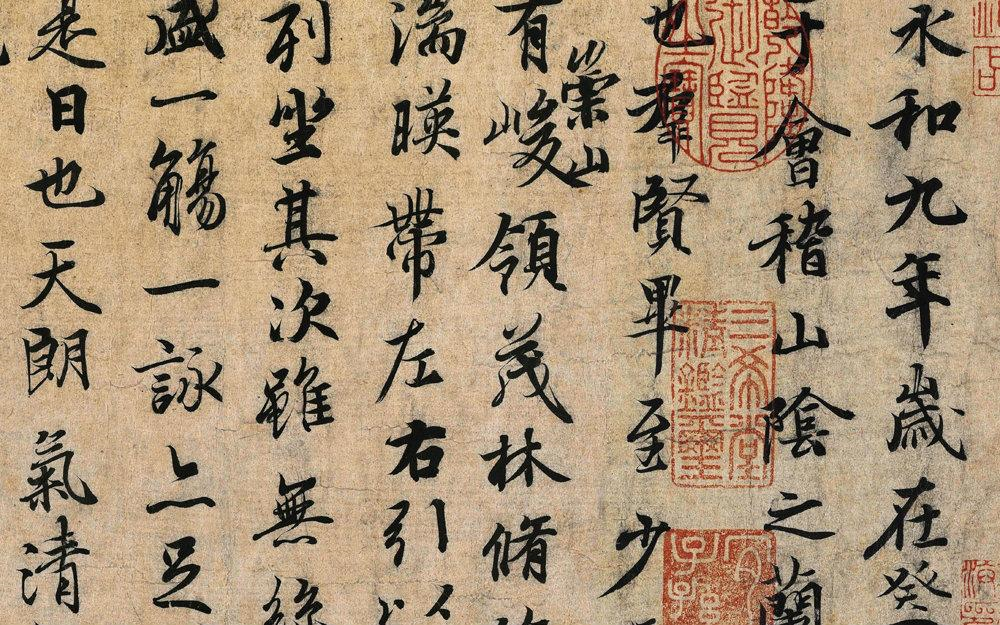 永和九年歲在癸
于會稽山陰之蘭
也群賢畢至少
有崇山峻領茂林脩
湍暎帶左右引以
列坐其次雖無絲
盛一觴一詠亦足
是日也天朗氣清
三希堂精鑑璽
宜子孫